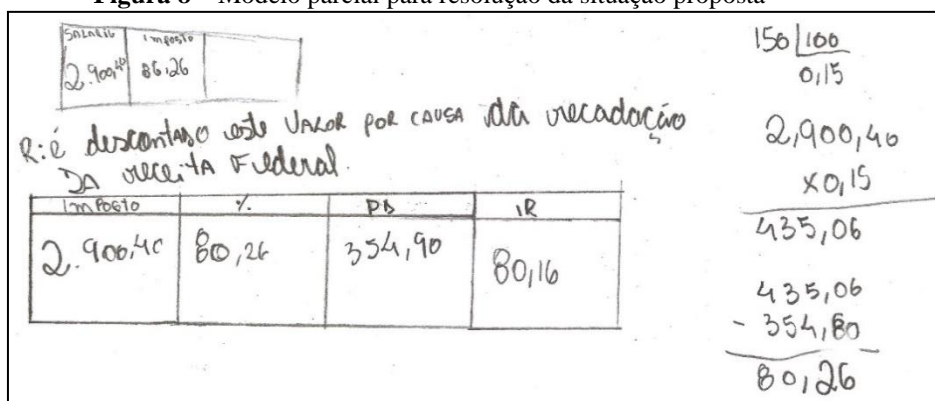 Figura 6 – Modelo parcial para resolução da situação proposta
SALARIO Imposto
2.900,40 86,26
R: é descontado este VALOR POR CAUSA da recadação
DA receita Federal.
Imposto % PD IR
2.900,40 80,26 354,90 80,16
150 100
0,15
2,900,40
x0,15
435,06
435,06
- 354,80
80,26